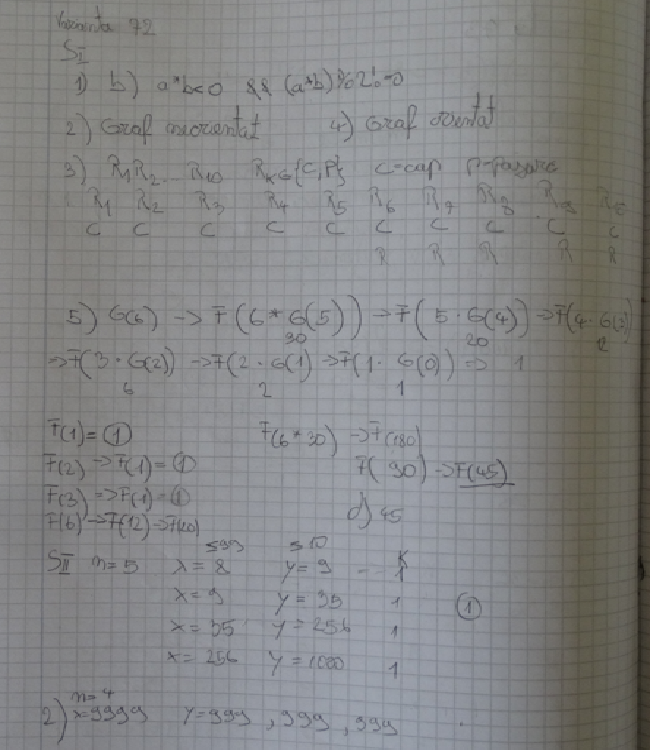 Varianta 72
SI
1) b) a*b<0 && (a*b)%2!=0
2) Graf neorientat 4) Graf orientat
3) R1 R2 ... R10 RK∈{C,P} C=cap P=pajura
R1 R2 R3 R4 R5 R6 R7 R8 R9
C C C C C C C C C C
R R R R R
5) G(6) -> F(6*G(5)) -> F(5·G(4)) -> F(4·G(3)
30 20 12
=> F(3·G(2)) -> F(2·G(1) -> F(1·G(0)) => 1
6 2 1
F(1)=1 F(6*30) -> F(180)
F(2) -> F(1)=1 F(90) -> F(45)
F(3) => F(1)=1
F(6) -> F(12) -> d) 45
599 510
SII n=5 x=8 y=9 K 1
x=9 y=35 1 1
x=35 y=256 1
x=256 y=1000 1
n=4
2) x=9999 y=999, 999, 999